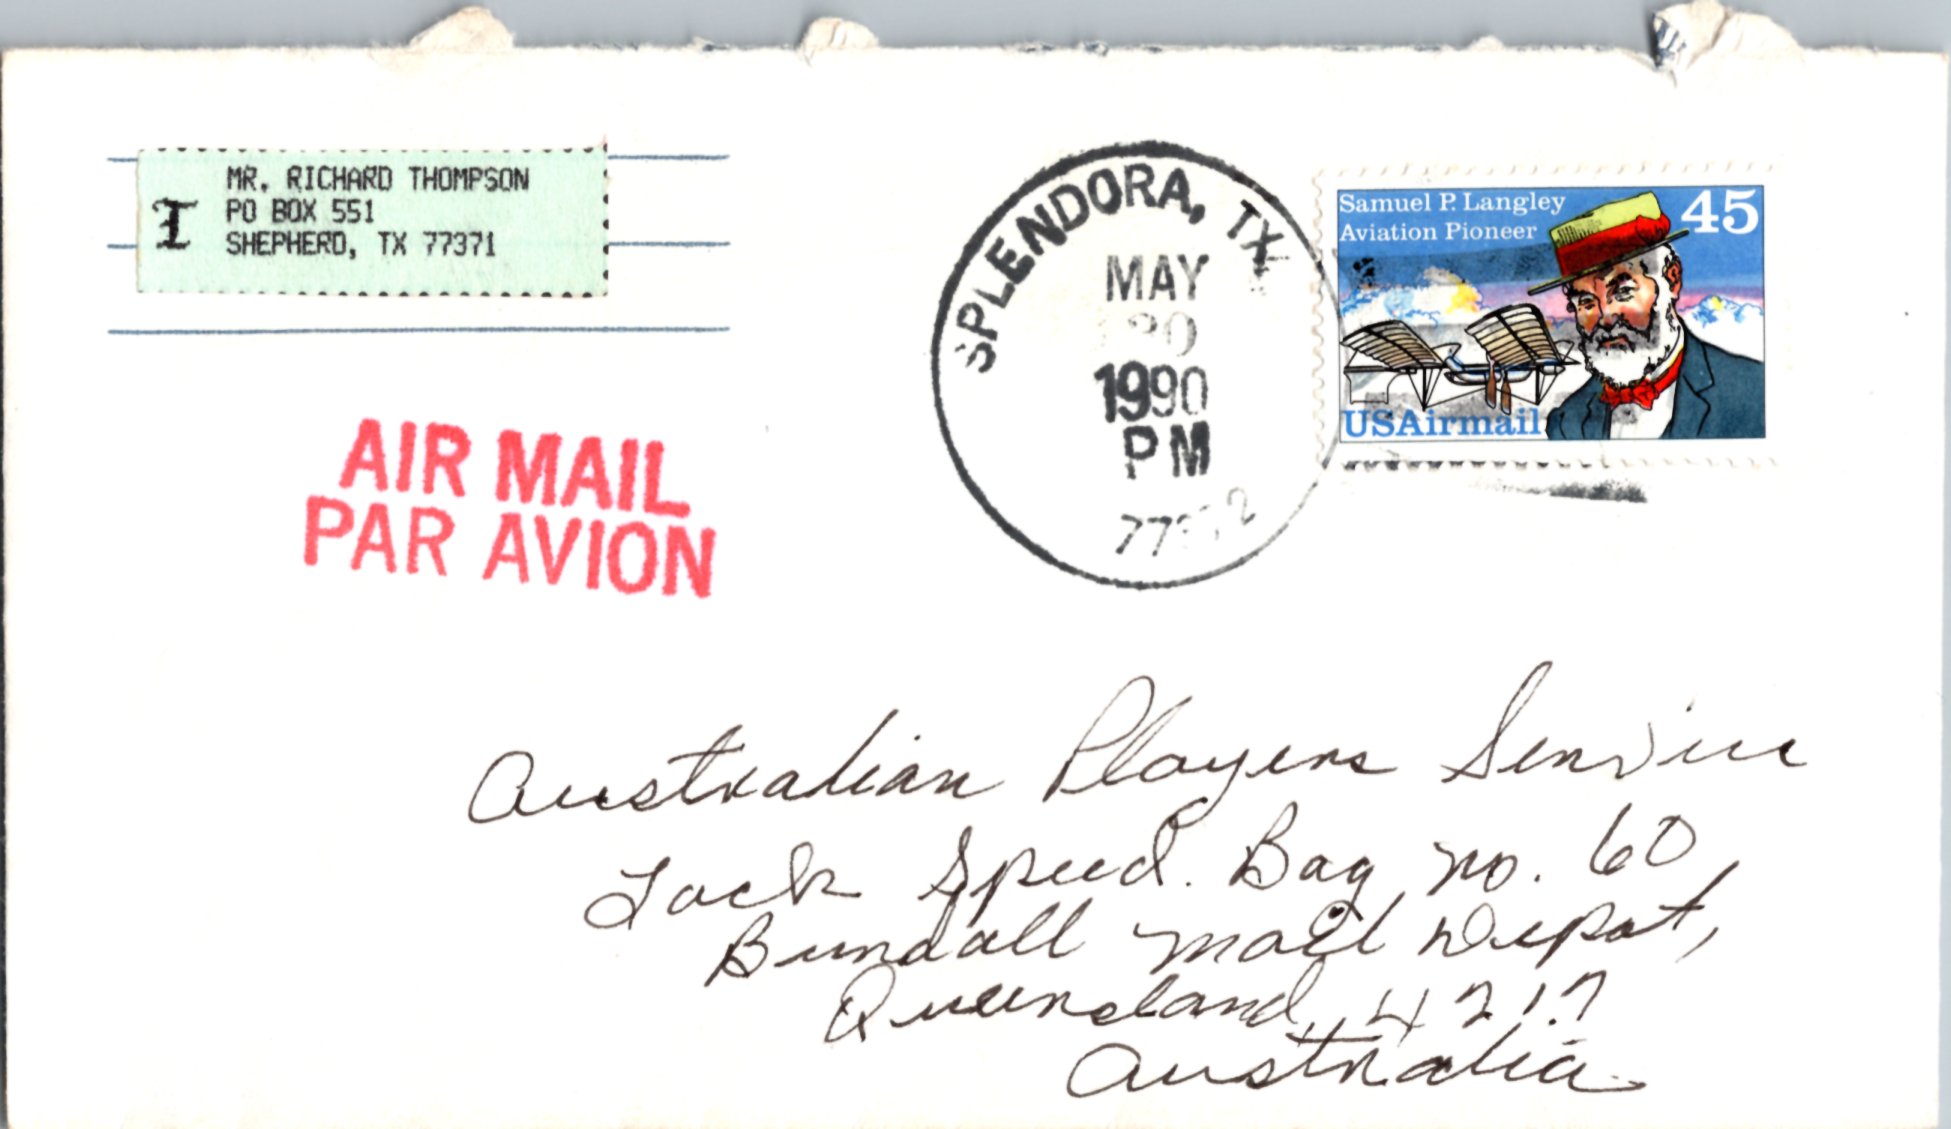 MR. RICHARD THOMPSON
PO BOX 551
SHEPHERD, TX 77371
I
SPLENDORA, TX
MAY
1990
PM
Samuel P. Langley
Aviation Pioneer
45
USAirmail
AIR MAIL
PAR AVION
Australian Players Service
Lock Speed. Bag no. 60
Bundall Mail Depot,
Queensland, 4217
Australia